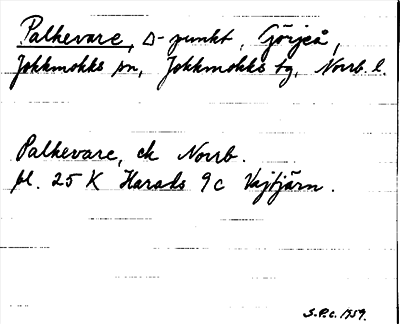 Palkevare, Δ-punkt, Görjeå,
Jokkmokks sn, Jokkmokks tg, Norrb. l.
Palkevare, ek Norrb.
bl. 25 K Harads 9c Vajtjärn.
S.P.c. 1759.